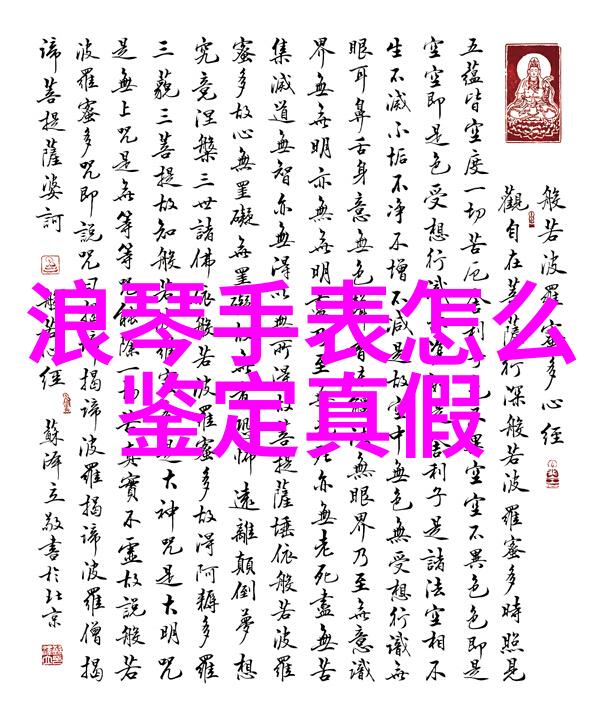 浪琴手表怎么
鉴定真假
般若波羅蜜多心經
觀自在菩薩行深般若波羅蜜多時照見
五蘊皆空度一切苦厄舍利子色不異空空不異色色即是
空空即是色受想行識亦復如是舍利子是諸法空相不
生不滅不垢不净不增不減是故空中無色無受想行識無
眼耳鼻舌身意無色聲香味觸法無眼界乃至無意識
界無無明亦無無明盡乃至無老死亦無老死盡無苦
集滅道無智亦無得以無所得故菩提薩埵依般若波羅
蜜多故心無罣礙無罣礙故無有恐怖遠離顛倒夢想
究竟涅槃三世諸佛依般若波羅蜜多故得阿耨多羅
三藐三菩提故知般若波羅蜜多是大神咒是大明咒
是無上咒是無等等咒能除一切苦真實不虛故說般若
波羅蜜多咒即說咒曰揭諦揭諦波羅揭諦波羅僧揭
諦菩提薩婆訶
般若心經
蘇澤立敬書於北京